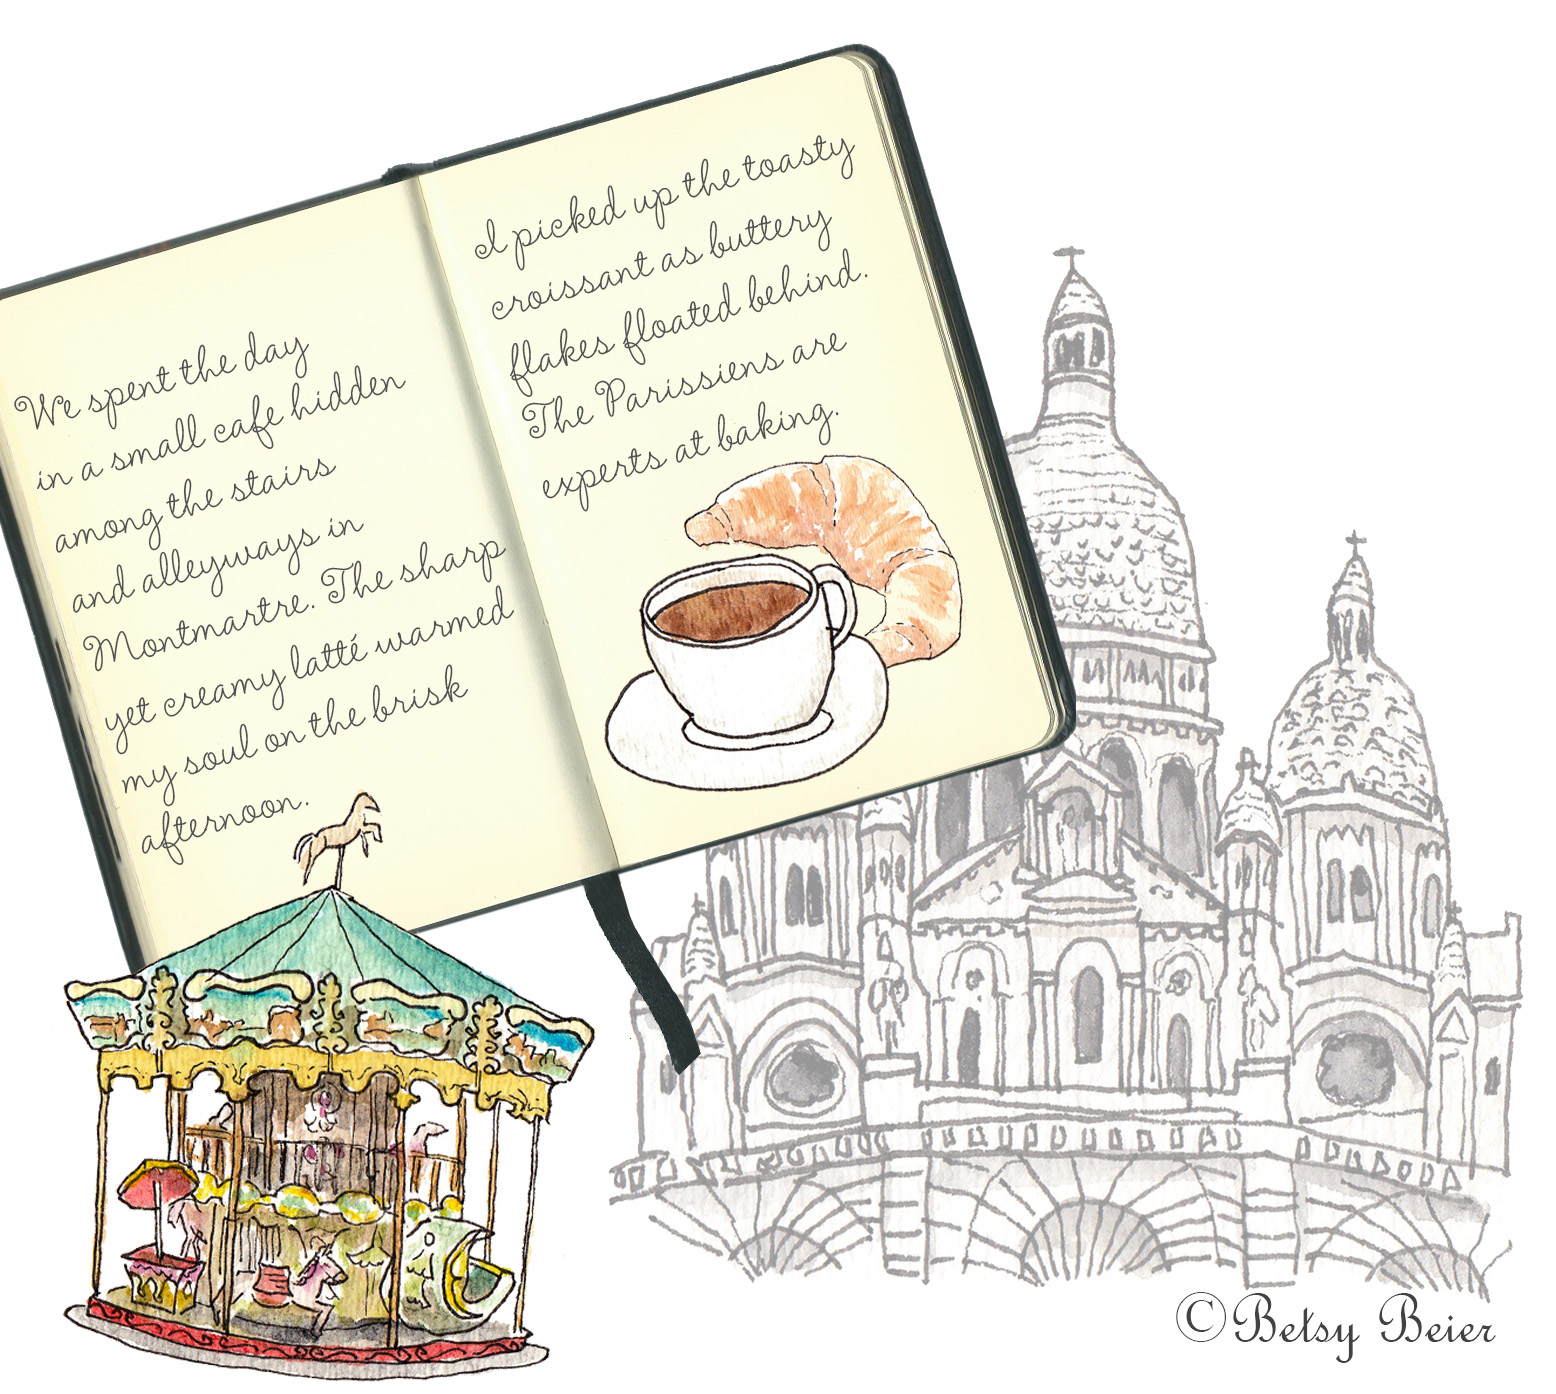 We spent the day
in a small cafe hidden
among the stairs
and alleyways in
Montmartre. The sharp
yet creamy latté warmed
my soul on the brisk
afternoon.
I picked up the toasty
croissant as buttery
flakes floated behind.
The Parissiens are
experts at baking.
©Betsy Beier